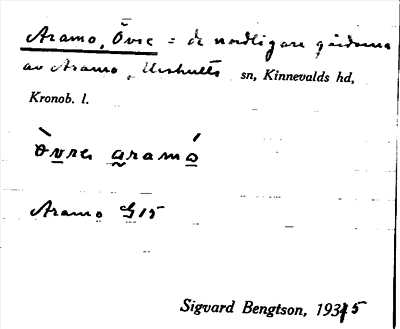 Aramo, Övre = de nordligare gårdarna
av Aramo, Urshults sn, Kinnevalds hd,
Kronob. l.
òvre aramó
Aramo G15
Sigvard Bengtson, 1935